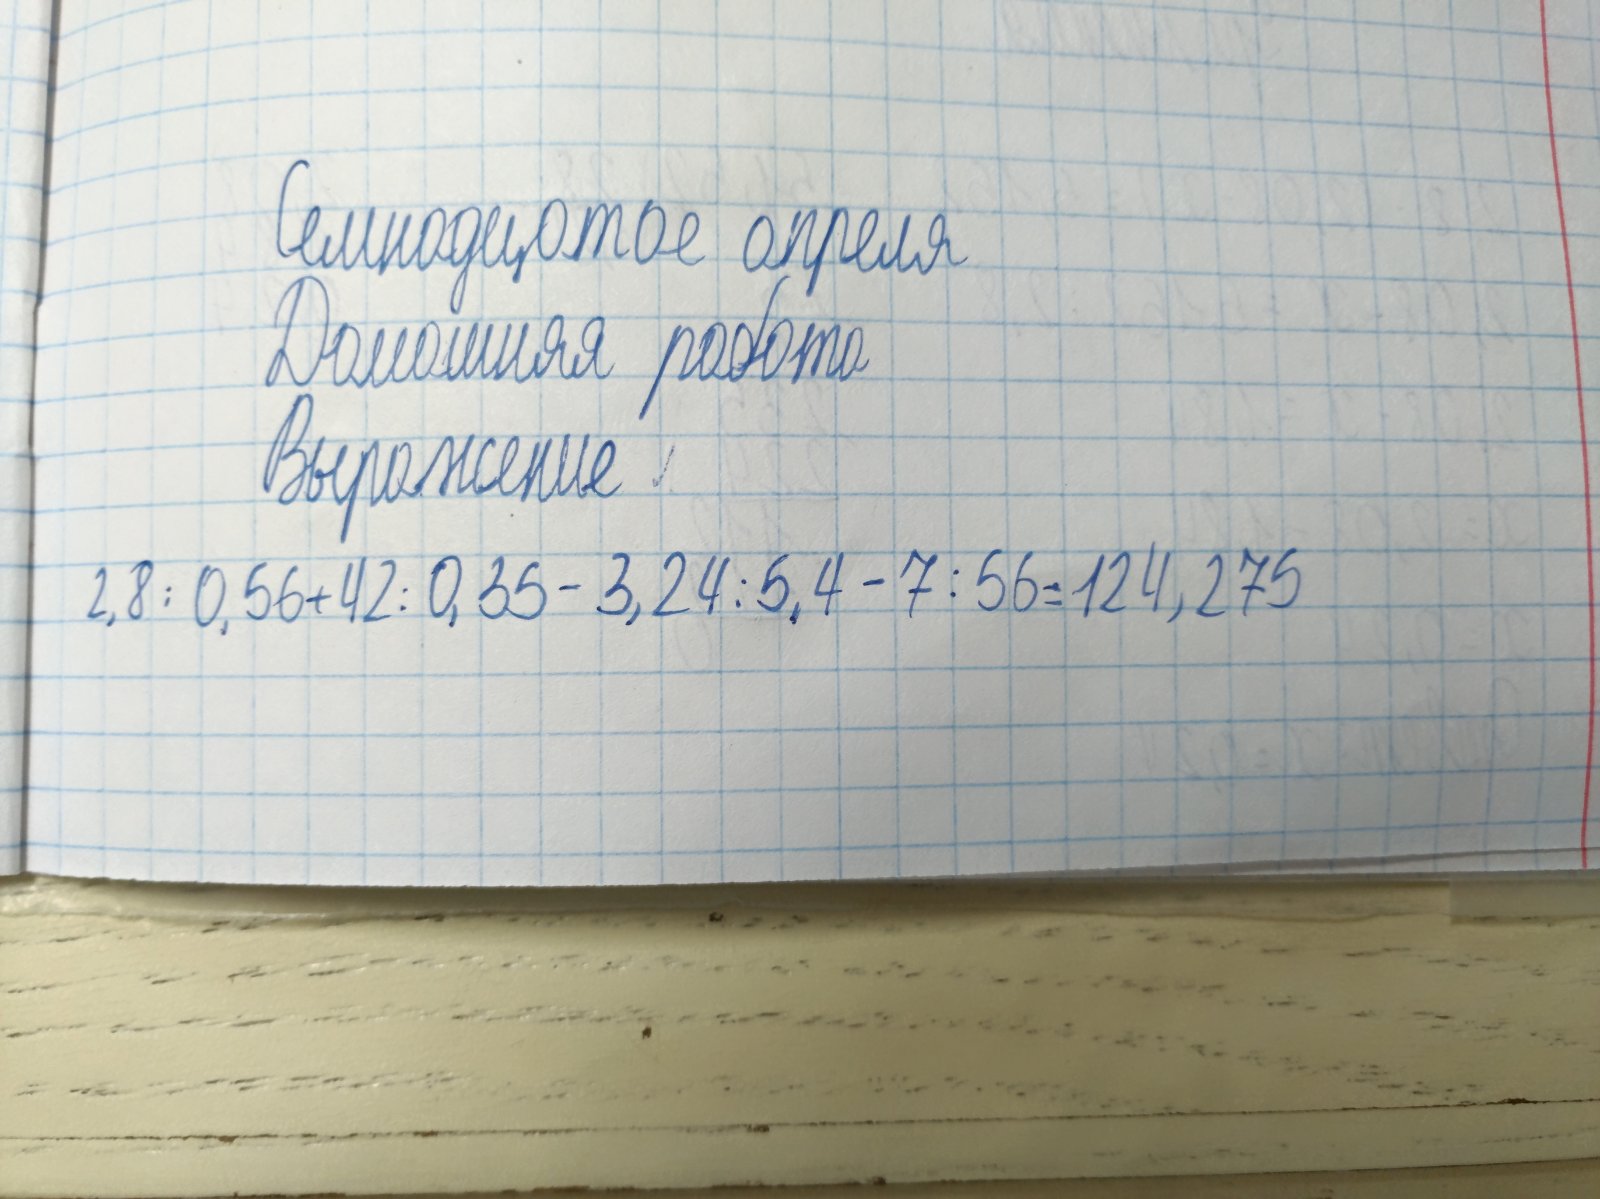 Семнадцатое апреля
Домашняя работа
Выражение
2,8 : 0,56 + 42 : 0,35 - 3,24 : 5,4 - 7 : 56 = 124,275